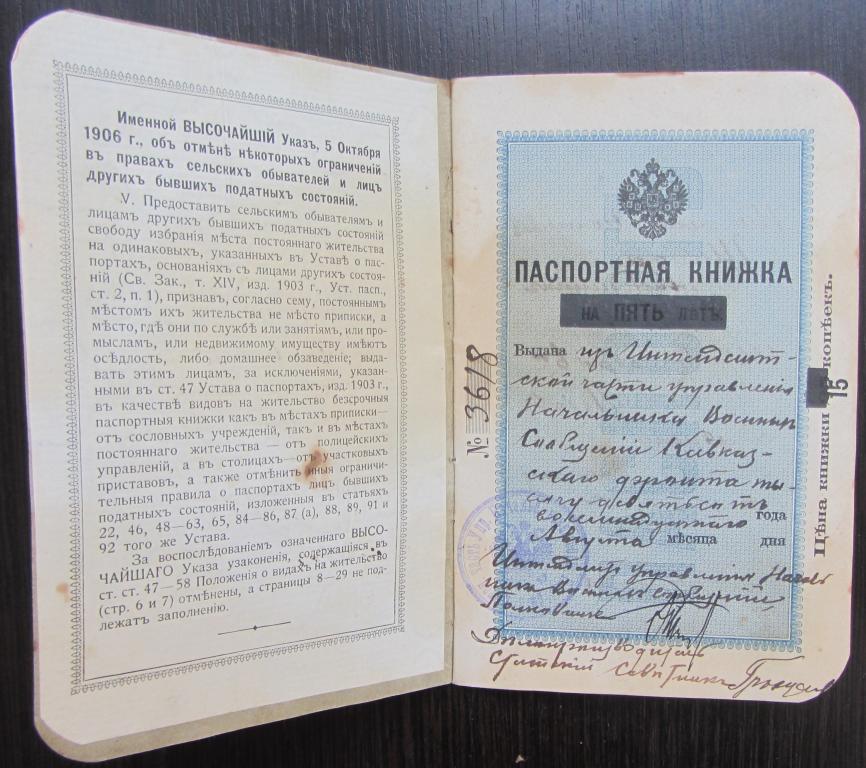 Именной ВЫСОЧАЙШІЙ Указъ, 5 Октября
1906 г., объ отмѣнѣ нѣкоторыхъ ограниченій
въ правахъ сельскихъ обывателей и лицъ
другихъ бывшихъ податныхъ состояній.
V. Предоставить сельскимъ обывателямъ и
лицамъ другихъ бывшихъ податныхъ состояній
свободу избранія мѣста постояннаго жительства
на одинаковыхъ, указанныхъ въ Уставѣ о пас-
портахъ, основаніяхъ съ лицами другихъ состоя-
ній (Св. Зак., т. XIV, изд. 1903 г., Уст. пасп.,
ст. 2, п. 1), признавъ, согласно сему, постояннымъ
мѣстомъ ихъ жительства не мѣсто приписки, а
мѣсто, гдѣ они по службѣ или занятіямъ, или про-
мысламъ, или недвижимому имуществу имѣютъ
осѣдлость, либо домашнее обзаведеніе; выда-
вать этимъ лицамъ, за исключеніями, указан-
ными въ ст. 47 Устава о паспортахъ, изд. 1903 г.,
въ качествѣ видовъ на жительство безсрочныя
паспортныя книжки какъ въ мѣстахъ приписки—
отъ сословныхъ учрежденій, такъ и въ мѣстахъ
постояннаго жительства — отъ полицейскихъ
управленій, а въ столицахъ—отъ участковыхъ
приставовъ, а также отмѣнить иныя ограничи-
тельныя правила о паспортахъ лицъ бывшихъ
податныхъ состояній, изложенныя въ статьяхъ
22, 46, 48—63, 65, 84—86, 87 (а), 88, 89, 91 и
92 того же Устава.
За воспослѣдованіемъ означеннаго ВЫСО-
ЧАЙШАГО Указа узаконенія, содержащіяся въ
ст. ст. 47—58 Положенія о видахъ на жительство
(стр. 6 и 7) отмѣнены, а страницы 8—29 не под-
лежатъ заполненію.
№ 3618
ПАСПОРТНАЯ КНИЖКА
НА ПЯТЬ ЛѢТЪ
Выдана изъ Интендант-
ской части управленія
Начальника Военныхъ
Сообщеній Кавказ-
скаго фронта ты-
сячу девятьсотъ
восемнадцатаго года
Августа мѣсяца дня
Интендантъ управленія Началь
ника Военныхъ сообщеній,
Полковникъ
Дѣлопроизводитель
Статскій Совѣтникъ
Цѣна книжки 15 копѣекъ.